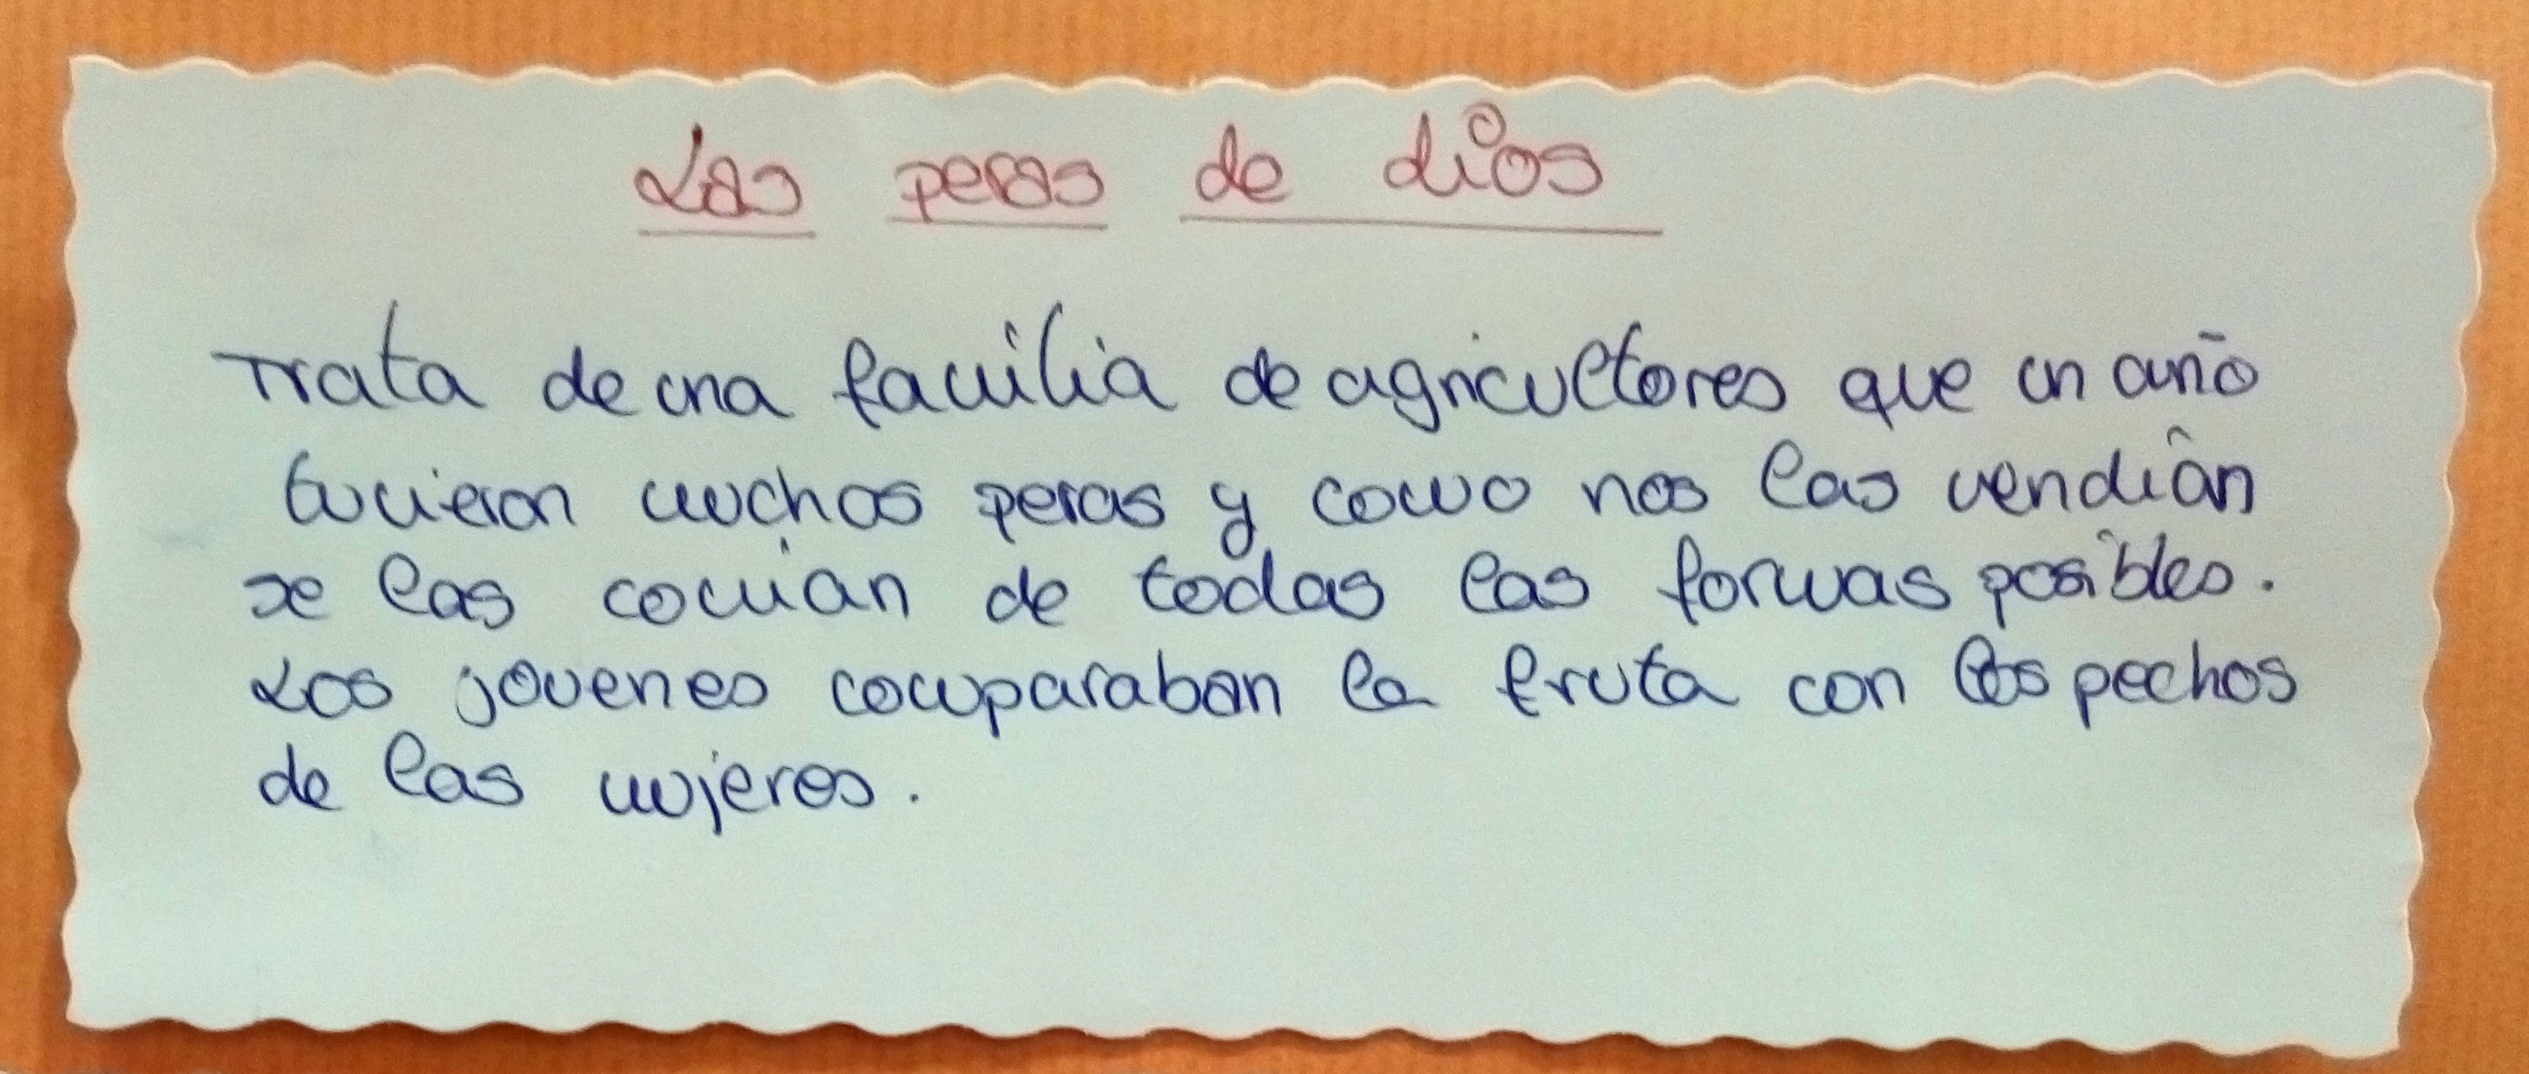 Las peras de dios
Trata de una familia de agricultores que un año
tuvieron muchas peras y como nos las vendían
se las comian de todas las formas posibles.
Los jovenes comparaban la fruta con los pechos
de las mujeres.